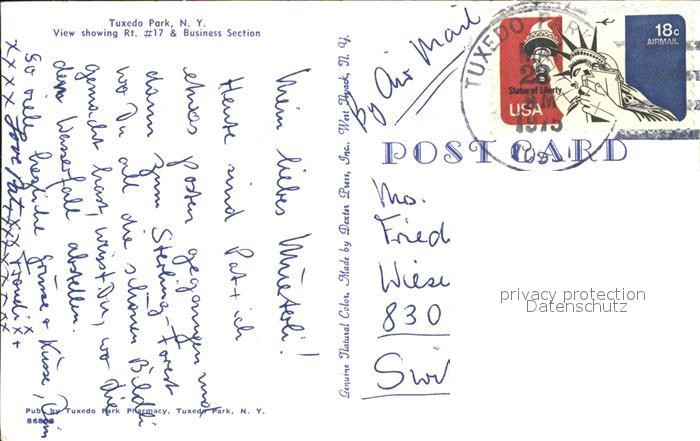 Tuxedo Park, N. Y.
View showing Rt. #17 & Business Section
Mein liebes Müeterli!
Heute sind Pat + ich
etwas posten gegangen und
dann zum Sterling-Forest
wo Du all die schönen Bildli
gemacht hast, weisst Du, wo die
dem Wasserfall abstellen.
So viele herzliche Grüsse + Küsse, Dein
x x x x Love Pat xxx
Pub. by Tuxedo Park Pharmacy, Tuxedo Park, N. Y.
Genuine Natural Color, Made by Dexter Press, Inc., West Nyack, N. Y.
By Air Mail
TUXEDO PARK
23
AM
1975
18c
AIRMAIL
Statue of Liberty
USA
POST CARD
Fried
Wiese
830
privacy protection
Datenschutz